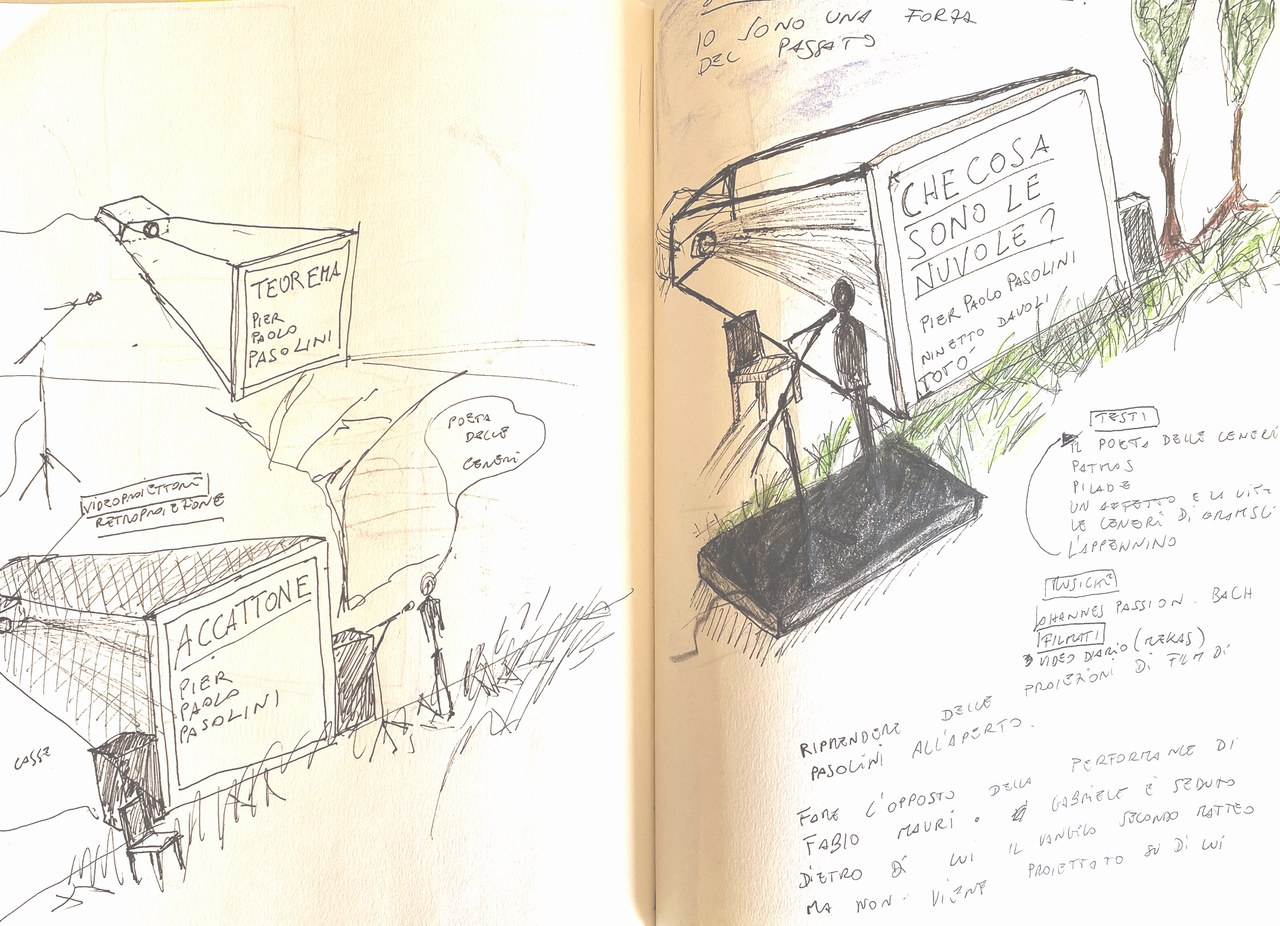 TEOREMA
PIER
PAOLO
PASOLINI
POETA
DELLE
CENERI
VIDEOPROIETTORE
RETROPROIEZIONE
ACCATTONE
PIER
PAOLO
PASOLINI
CASSE
IO SONO UNA FORZA
DEL PASSATO
CHE COSA
SONO LE
NUVOLE?
PIER PAOLO PASOLINI
NINETTO DAVOLI
TOTÒ
TESTI
IL POETA DELLE CENERI
PATMOS
PILADE
UN AFFETTO E LA VITA
LE CENERI DI GRAMSCI
L'APPENNINO
MUSICHE
JOHANNES PASSION. BACH
FILMATI
VIDEO DIARIO (MEKAS)
RIPRENDERE DELLE PROIEZIONI DI FILM DI
PASOLINI ALL'APERTO.
FARE L'OPPOSTO DELLA PERFORMANCE DI
FABIO MAURI. GABRIELE È SEDUTO
DIETRO DI LUI IL VANGELO SECONDO MATTEO
MA NON VIENE PROIETTATO SU DI LUI